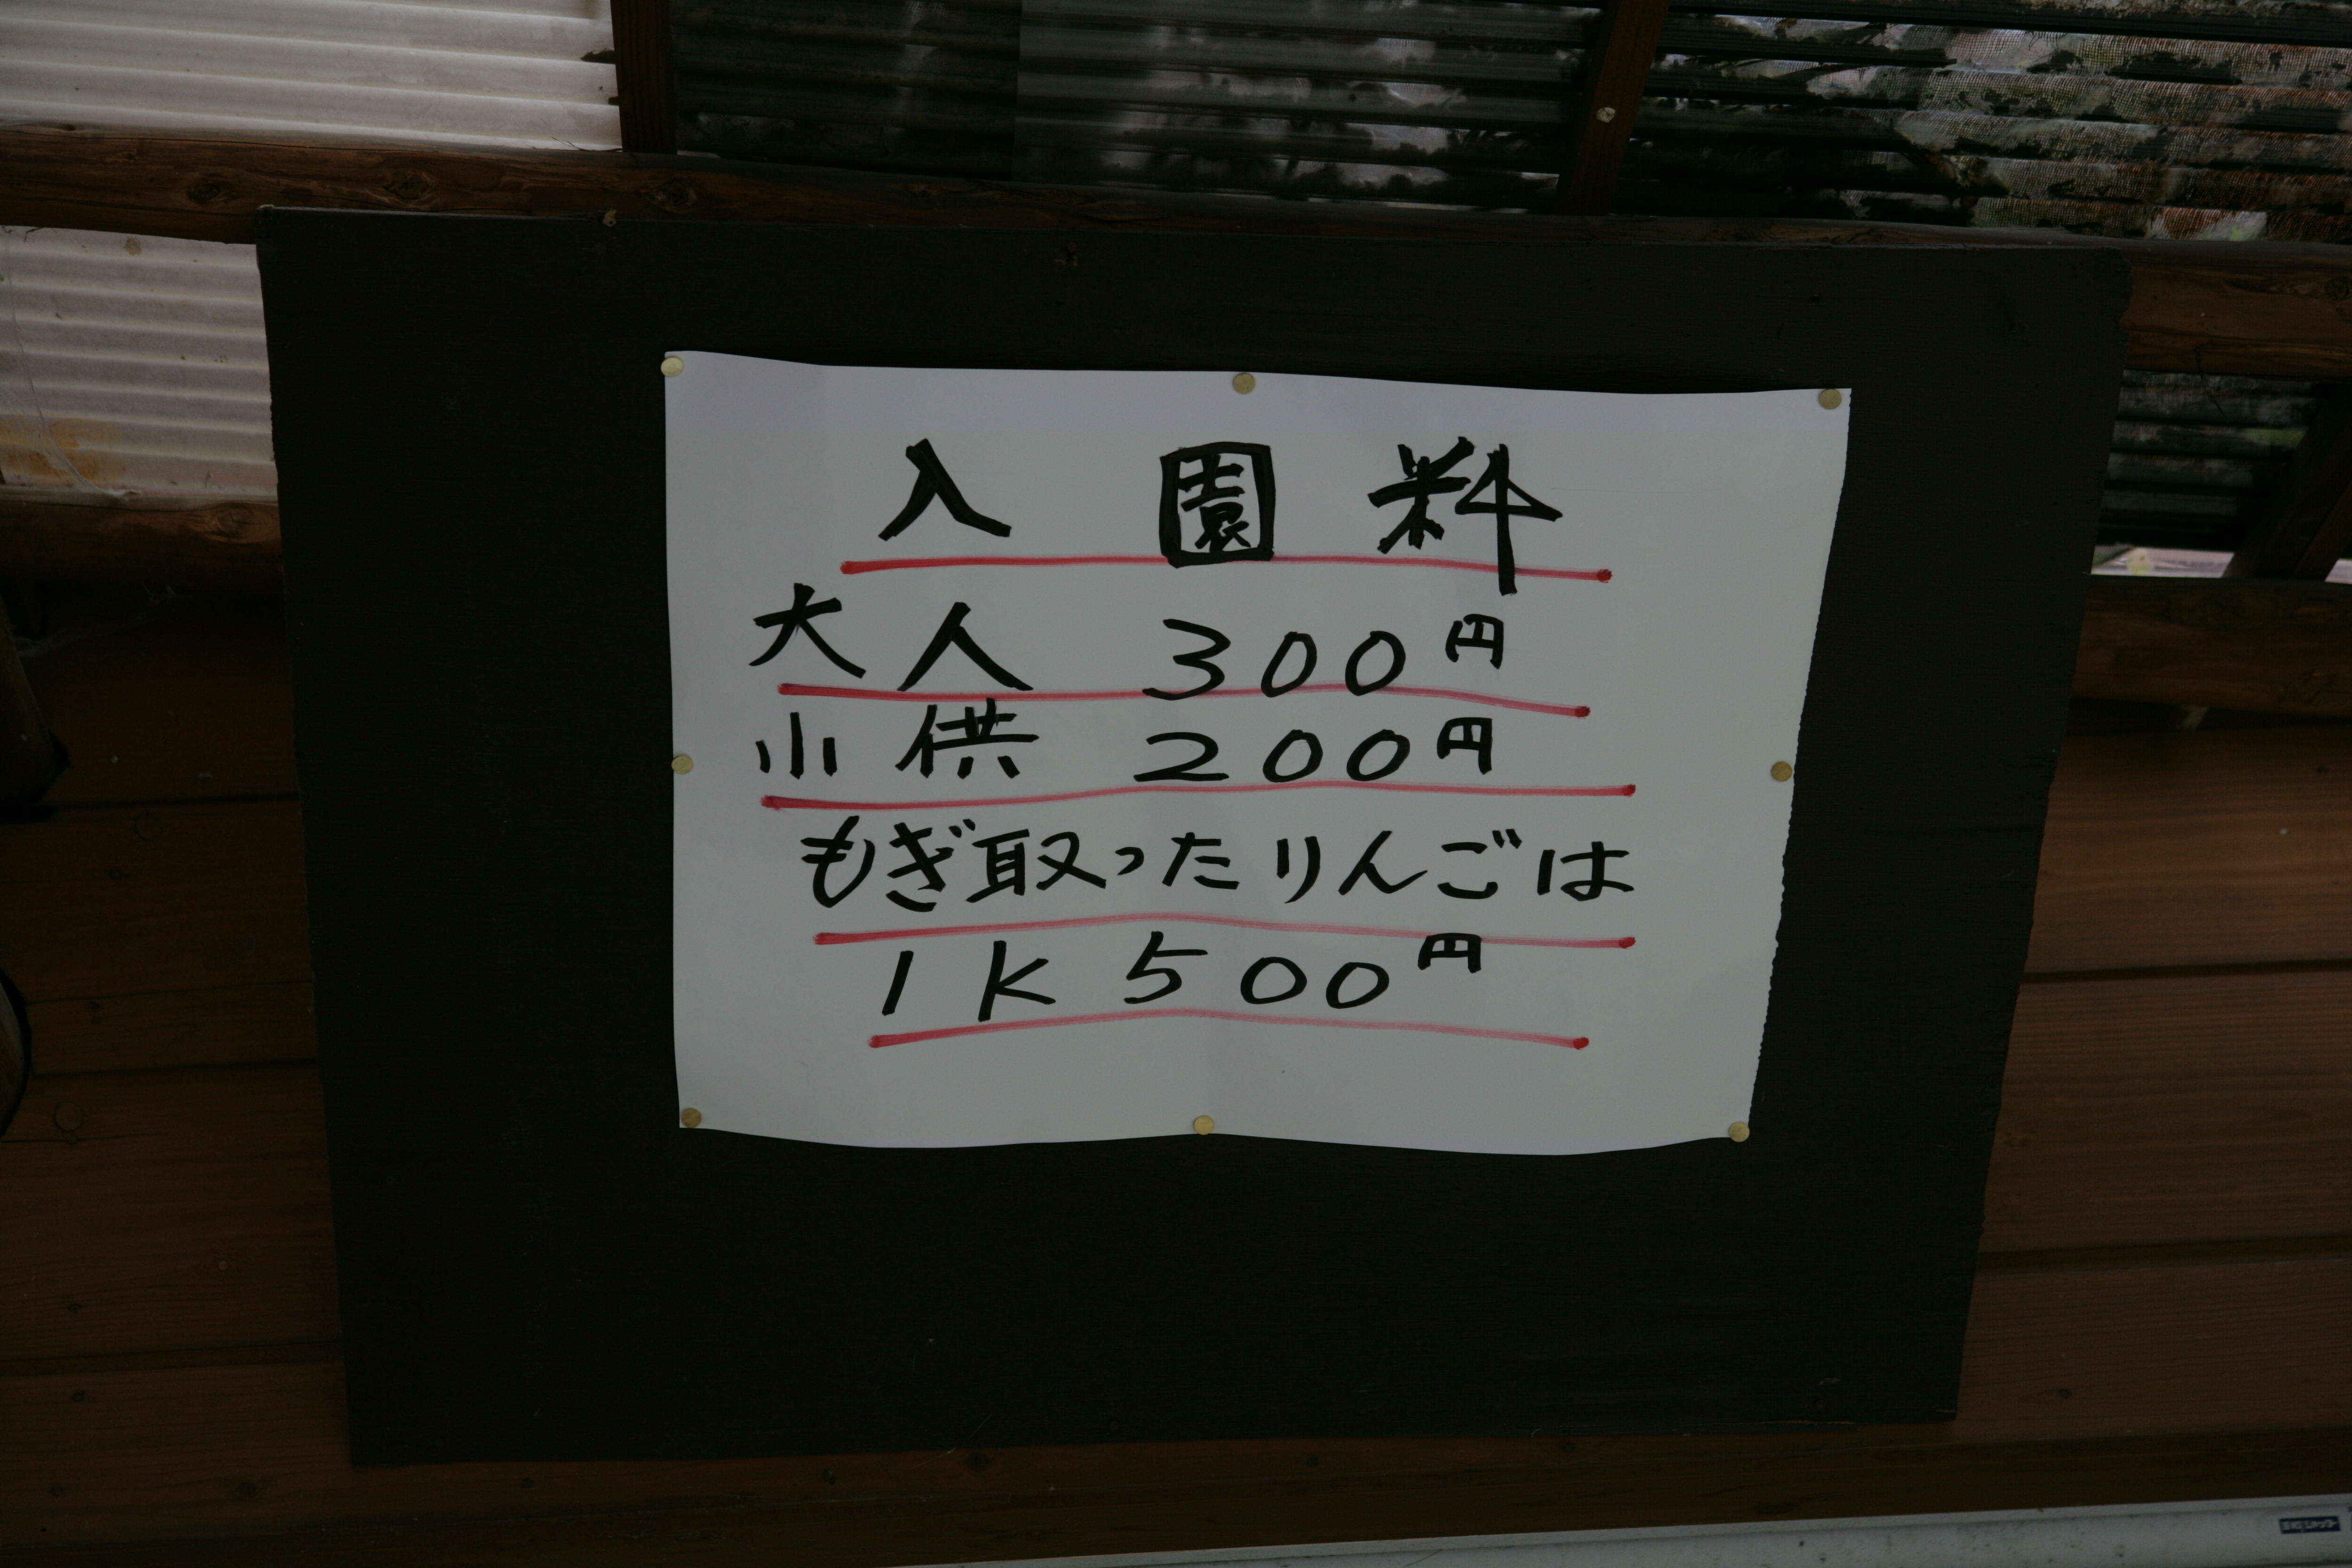 入園料
大人 300円
小供 200円
もぎ取ったりんごは
1K 500円